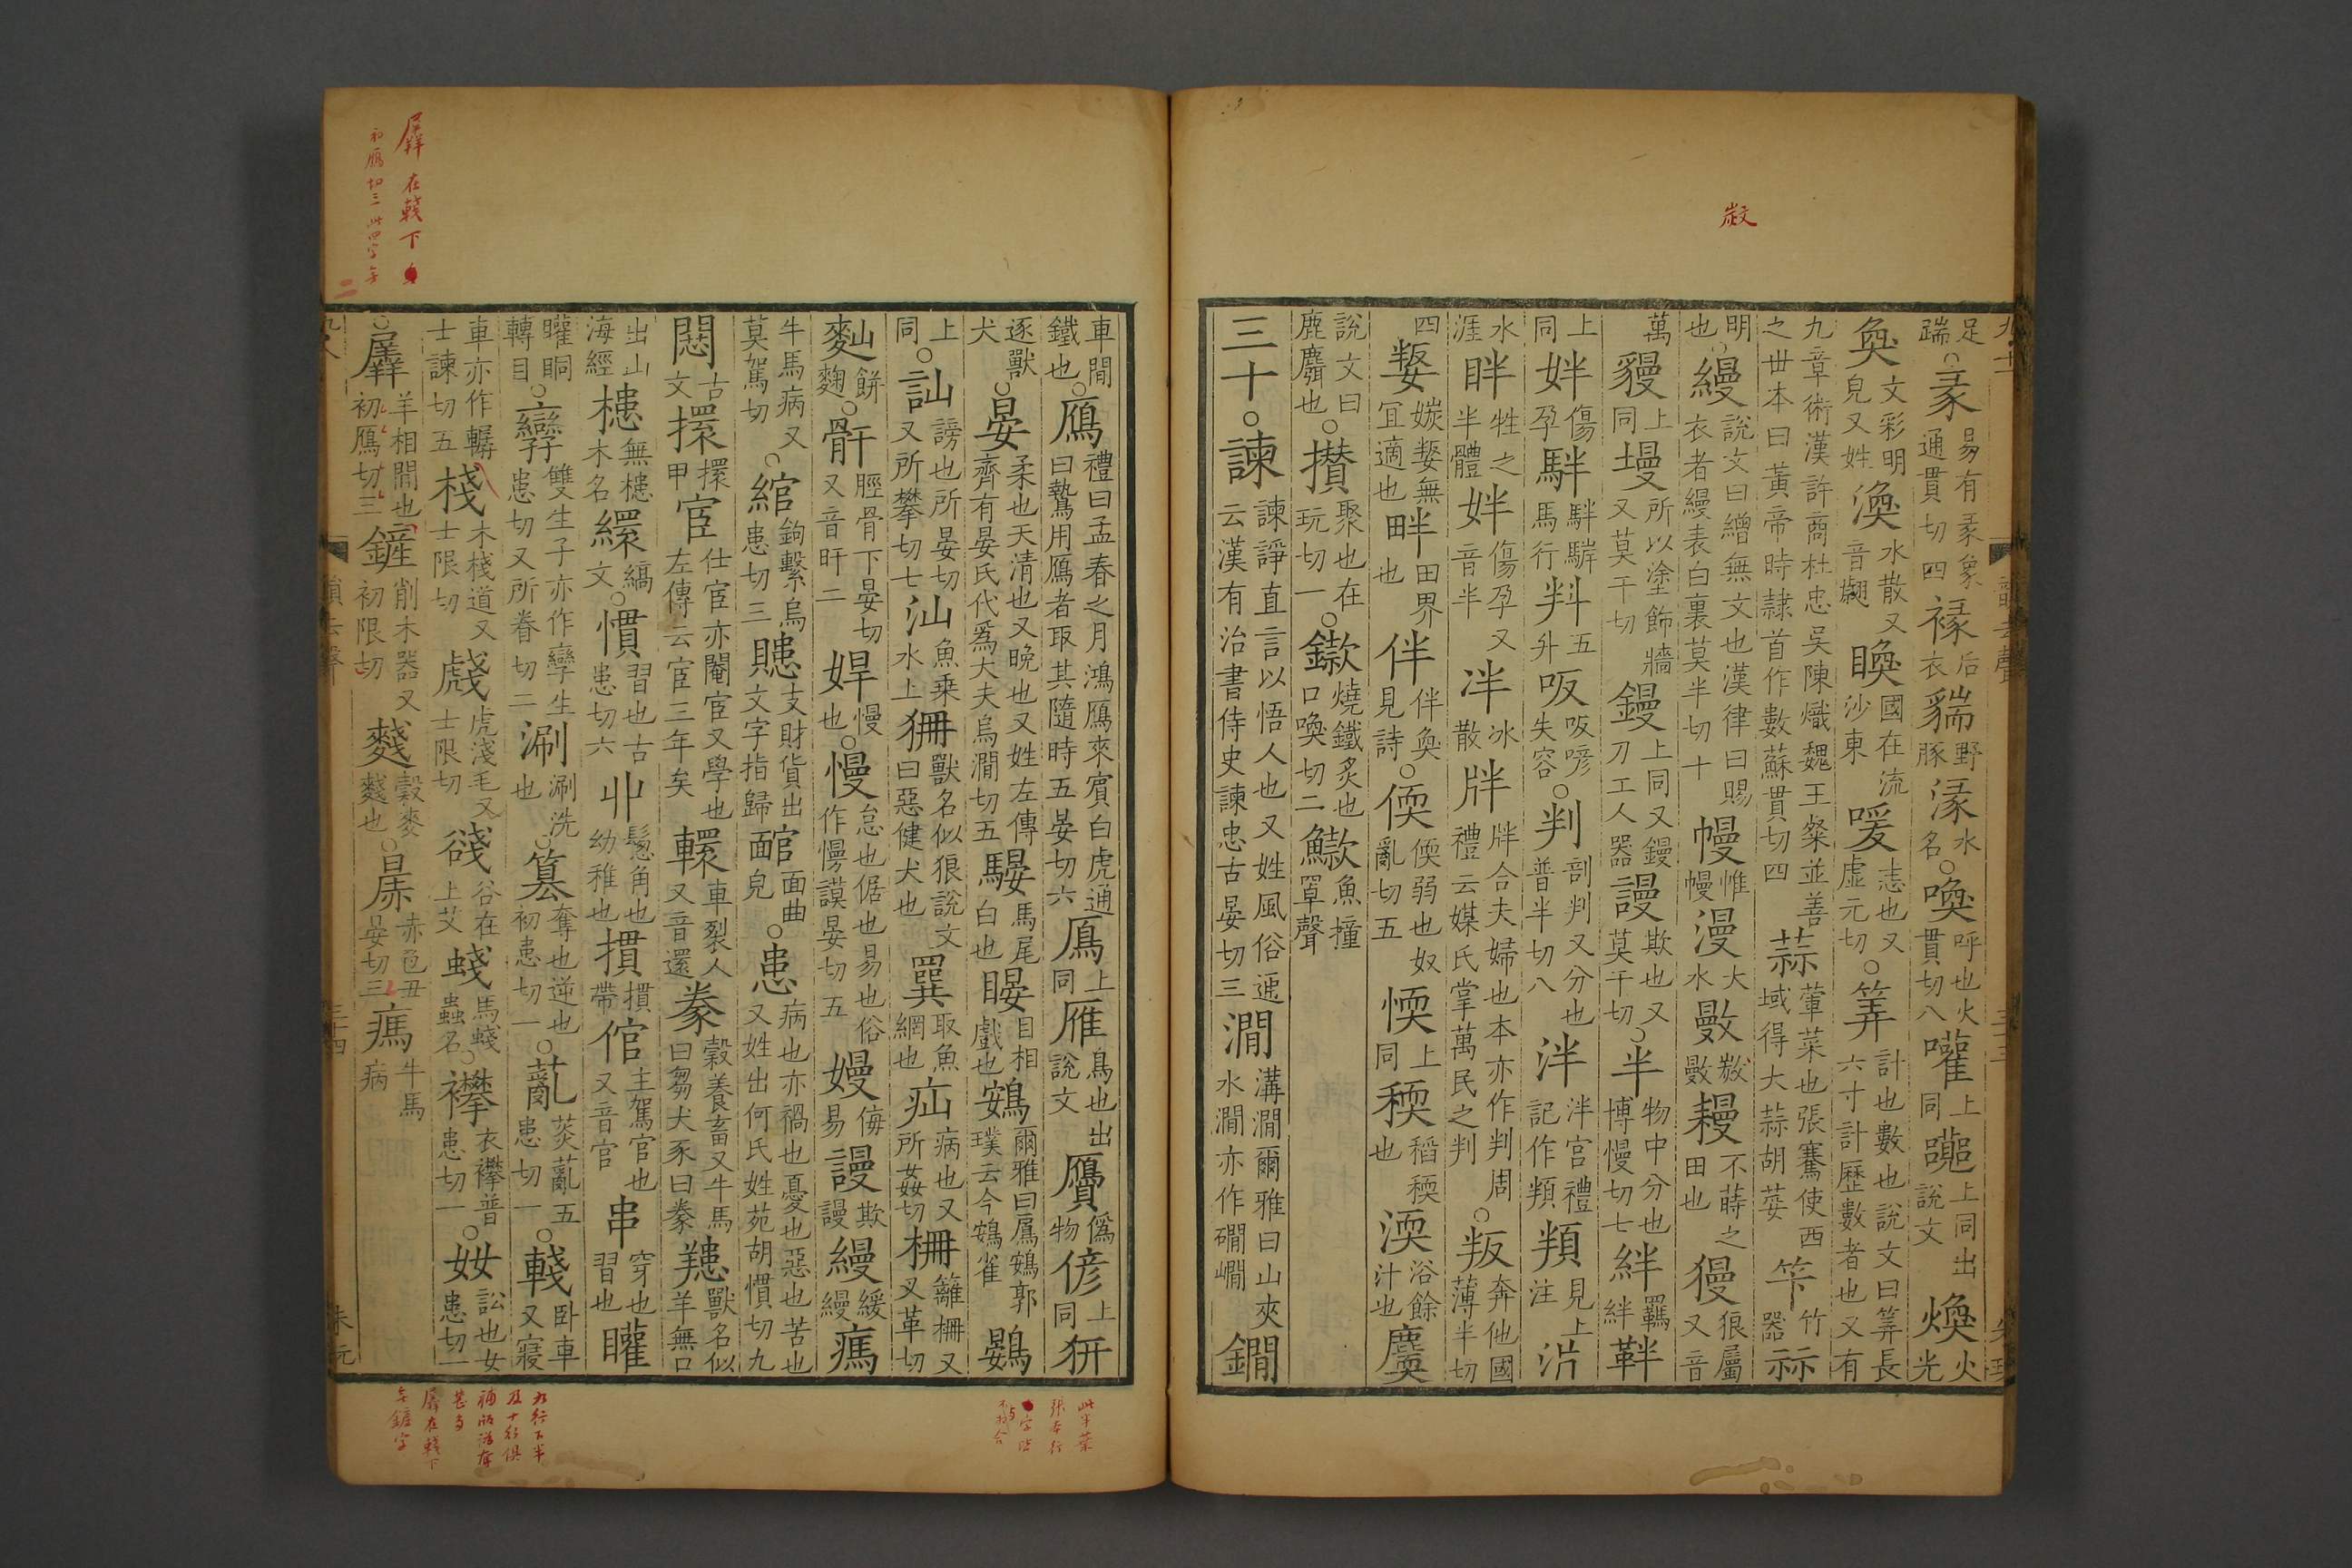 敪
足踹○彖易有彖象通貫切四褖后衣貒野豚湪水名○喚呼也火貫切八嚾上同㘚上同出說文煥火光
奐文彩明皃又姓渙水散又音翽䀓國在流沙東㬊恚也又虛元切○筭計也數也說文曰筭長六寸計歷數者也又有
九章術漢許商杜忠吳陳熾魏王粲並善之世本曰黃帝時隸首作數蘇貫切四蒜葷菜也張騫使西域得大蒜胡荽竹器祘
明也○縵說文曰繒無文也漢律曰賜衣者縵表白裏莫半切十幔帷幔漫大水𢿜𢿜𢾭䅼不蒔田也之獌狼屬又音
萬貗上同墁所以塗飾牆又莫干切鏝上同又鏝刀工人器謾欺也又莫干切○半物中分也博慢切七絆羈絆靽
上同姅傷孕䭴䭴騂馬行㪵五升㕫㕫喭失容○判剖判又分也普半切八泮泮宮禮記作頖頖見上注沜
水涯眫牲之半體姅傷孕又音半冸冰散牉牉合夫婦也本亦作判周禮云媒氏掌萬民之判○叛奔他國薄半切
四媻㜝媻無宜適也畔田界也伴伴奐見詩○偄偄弱也奴亂切五愞上同稬稻稬也渜浴餘汁也麌
說文曰鹿麛也○攢聚也在玩切一○鏉燒鐵炙也口喚切二䲌魚撞罩聲
三十○諫諫諍直言以悟人也又姓風俗通云漢有治書侍史諫忠古晏切三澗溝澗爾雅曰山夾水澗亦作磵㵎鐧
車閒鐵也○鴈禮曰孟春之月鴻鴈來賓白虎通曰贄用鴈者取其隨時五晏切六鳫上同雁鳥也出說文贗僞物偐上同豜
逐獸犬○晏柔也天清也又晚也又姓左傳齊有晏氏代爲大夫烏澗切五騴馬尾白也䁙目相戲也鴳爾雅曰鳸鴳郭璞云今鴳雀鷃
上同○訕謗也所晏切又所攀切七汕魚乗水上狦獸名似狼說文曰惡健犬也㔼取魚網也疝病也又所姦切柵籬柵又又革切
䴮餅麴○骭脛骨下晏切又音旰二䍐慢也○慢怠也倨也易也俗作慢謨晏切五嫚侮易謾欺謾縵緩縵㾺
牛馬病又莫駕切○綰鉤繫烏患切三䝠支財貨出文字指歸䩤面曲皃○患病也亦禍也憂也惡也苦也又姓出何氏姓苑胡慣切九
㥁古文擐擐甲宦仕宦亦閹宦又學也左傳云宦三年矣轘車裂人又音還豢穀養畜又牛馬曰芻犬豕曰豢羱獸名似羊無口
出山海經槵無槵木名繯縞文○慣習也古患切六丱髻角也幼稚也摜摜帶倌主駕官也又音官串穿也習也矔
矔眮轉目○孿雙生子亦作㝈生患切又所眷切二涮涮洗也○篡奪也逆也初患切一○薍菼薍五患切一○輚卧車又寢
車亦作轏士諫切五棧木棧道又士限切虥虎淺毛又士限切㟞谷在上艾䗃馬䗃蟲名○襻衣襻普患切一○奻訟也女患切一
○羼羊相閒也初鴈切三鏟削木器又初限切䴼穀麥䴼也○㬎赤色丑晏切三㾺牛馬病
羼在輚下
初鴈切三
三十四
朱元
此半葉